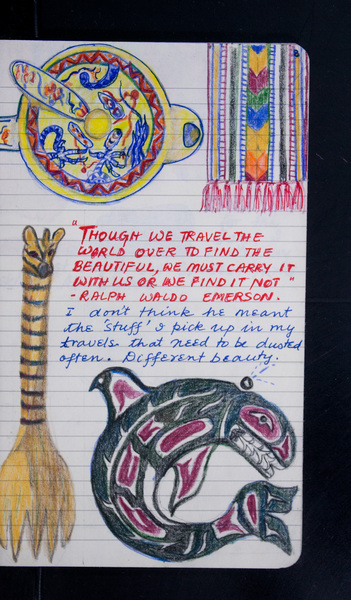 "THOUGH WE TRAVEL THE
WORLD OVER TO FIND THE
BEAUTIFUL, WE MUST CARRY IT
WITH US OR WE FIND IT NOT"
- RALPH WALDO EMERSON.
I don't think he meant
the 'stuff' I pick up in my
travels that need to be dusted
often. Different beauty.